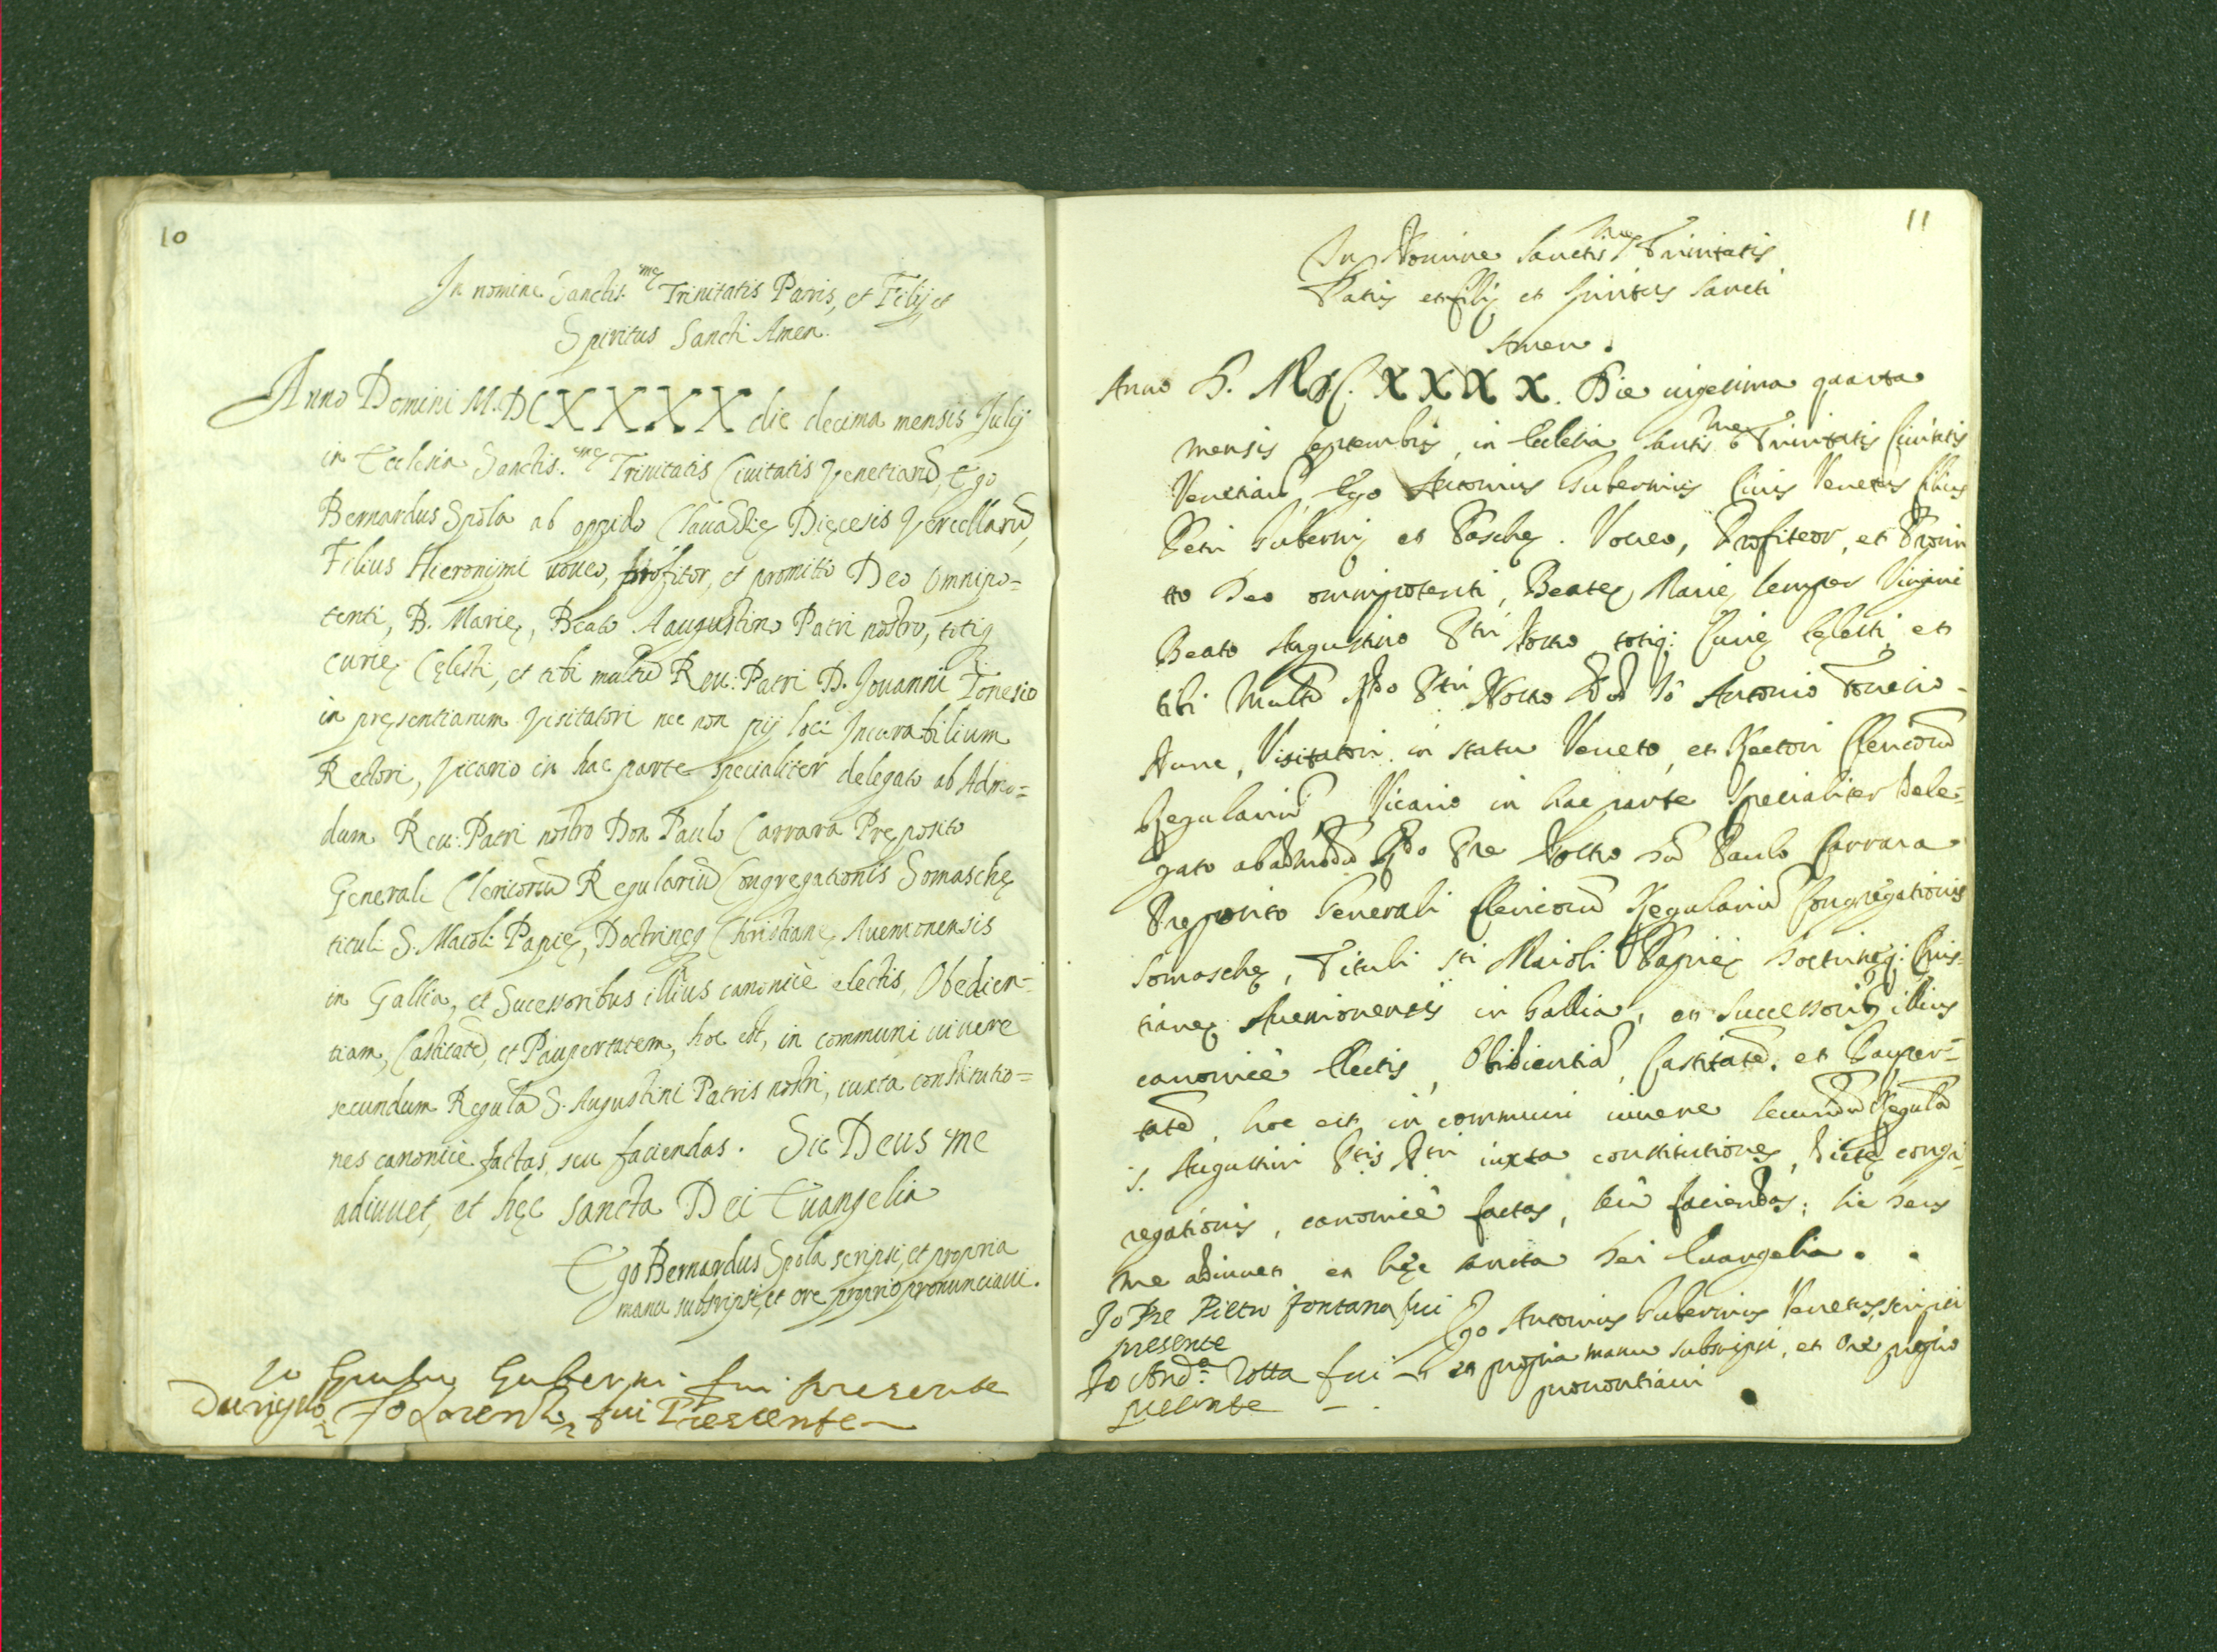 10
In nomine Sanctis.mę Trinitatis Patris, et Filij, et
Spiritus Sancti Amen.
Anno Domini M.DCXXXX die decima mensis Julij
in Ecclesia Sanctis.mę Trinitatis Civitatis Venetiarũ, Ego
Bernardus Spola ab oppido Clauassię Dięcesis Vercellarũ,
Filius Hieronimi voueo, profitor, et promitto Deo Omnipo=
tenti, B. Marię, Beato Aaugustino Patri nostro, totiq;
curię Cęlesti, et tibi multũ Reu: Patri D. Jouanni Tonesio
in pręsentiarum Visitatori nec non pij loci Incurabilium
Rectori, Vicario in hac parte specialiter delegato ab Admo=
dum Reu: Patri nostro Don Paulo Carrara Pręposito
Generali Clericorũ Regulariũ Congregationis Somaschę
tituli S. Maioli Papię, Doctrinęq Christianę Auenionensis
in Gallia, et Sucessoribus illius canonicè electis, Obedien=
tiam, Castitatẽ, et Paupertatem, hoc est, in communi uiuere
secundum Regulã S. Augustini Patris nostri, iuxta constitutio=
nes canonicè factas, seu faciendas. Sic Deus me
adiuuet, et hęc sancta Dei Euangelia
Ego Bernardus Spola scripsi, et propria
manu subscripsi, et ore proprio pronunciaui.
Io Guberni fui presente
Io Lorenzo fui Presente
11
In Nomine Sanctismę Trinitatis
Patris et filij et Spiritus Sancti
Amen.
Anno D. MDC.XXXX. Die uigesima quarta
mensis septembris, in Ecclesia Santismę Trinitatis Ciuitatis
Venetiarũ, Ego Antonius Gubernius Ciuis Venetus filius
Petri Gubernij et Paschę. Voueo, Profiteor, et Promi
tto Deo omnipotenti, Beatę Marię semper Virgini
Beato Augustino Ptri Nostro totiq: Curię Cęlesti, et
tibi Multũ Rdo Ptri Nostro Dõ Iõ Antonio Tonesio
Nunc, Visitatori in statu Veneto, et Rectori Clericorũ
Regulariũ Vicario in hac parte Specialiter Dele=
gato ab admodũ Rdo Pre Nostro Dõ Paulo Carrara
Pręposito Generali Clericorũ Regulariũ Congregationis
Somaschę, Tituli Sti Maioli Papię Doctrinęq: Chris=
tianę Auenionensis in Gallia, et Successoribꝫ illius
canonicè Electis, Obidientiã, Castitatẽ, et Pauper=
tatẽ, hoc est in communi uiuere secundũ Regulã
S. Augustini Ptis Ntri iuxta constitutiones, dictę cong=
regationis, canonicè factas, seu faciendas; sic Deus
me adiuuet et hęc sancta Dei Euangelia.
Ego Antonius Gubernius Venetus scripsi
et propria manu subscripsi, et ore proprio
pronontiaui
Jo Pre Pietro fontana fui
presente
Jo And.a Rotta fui
presente